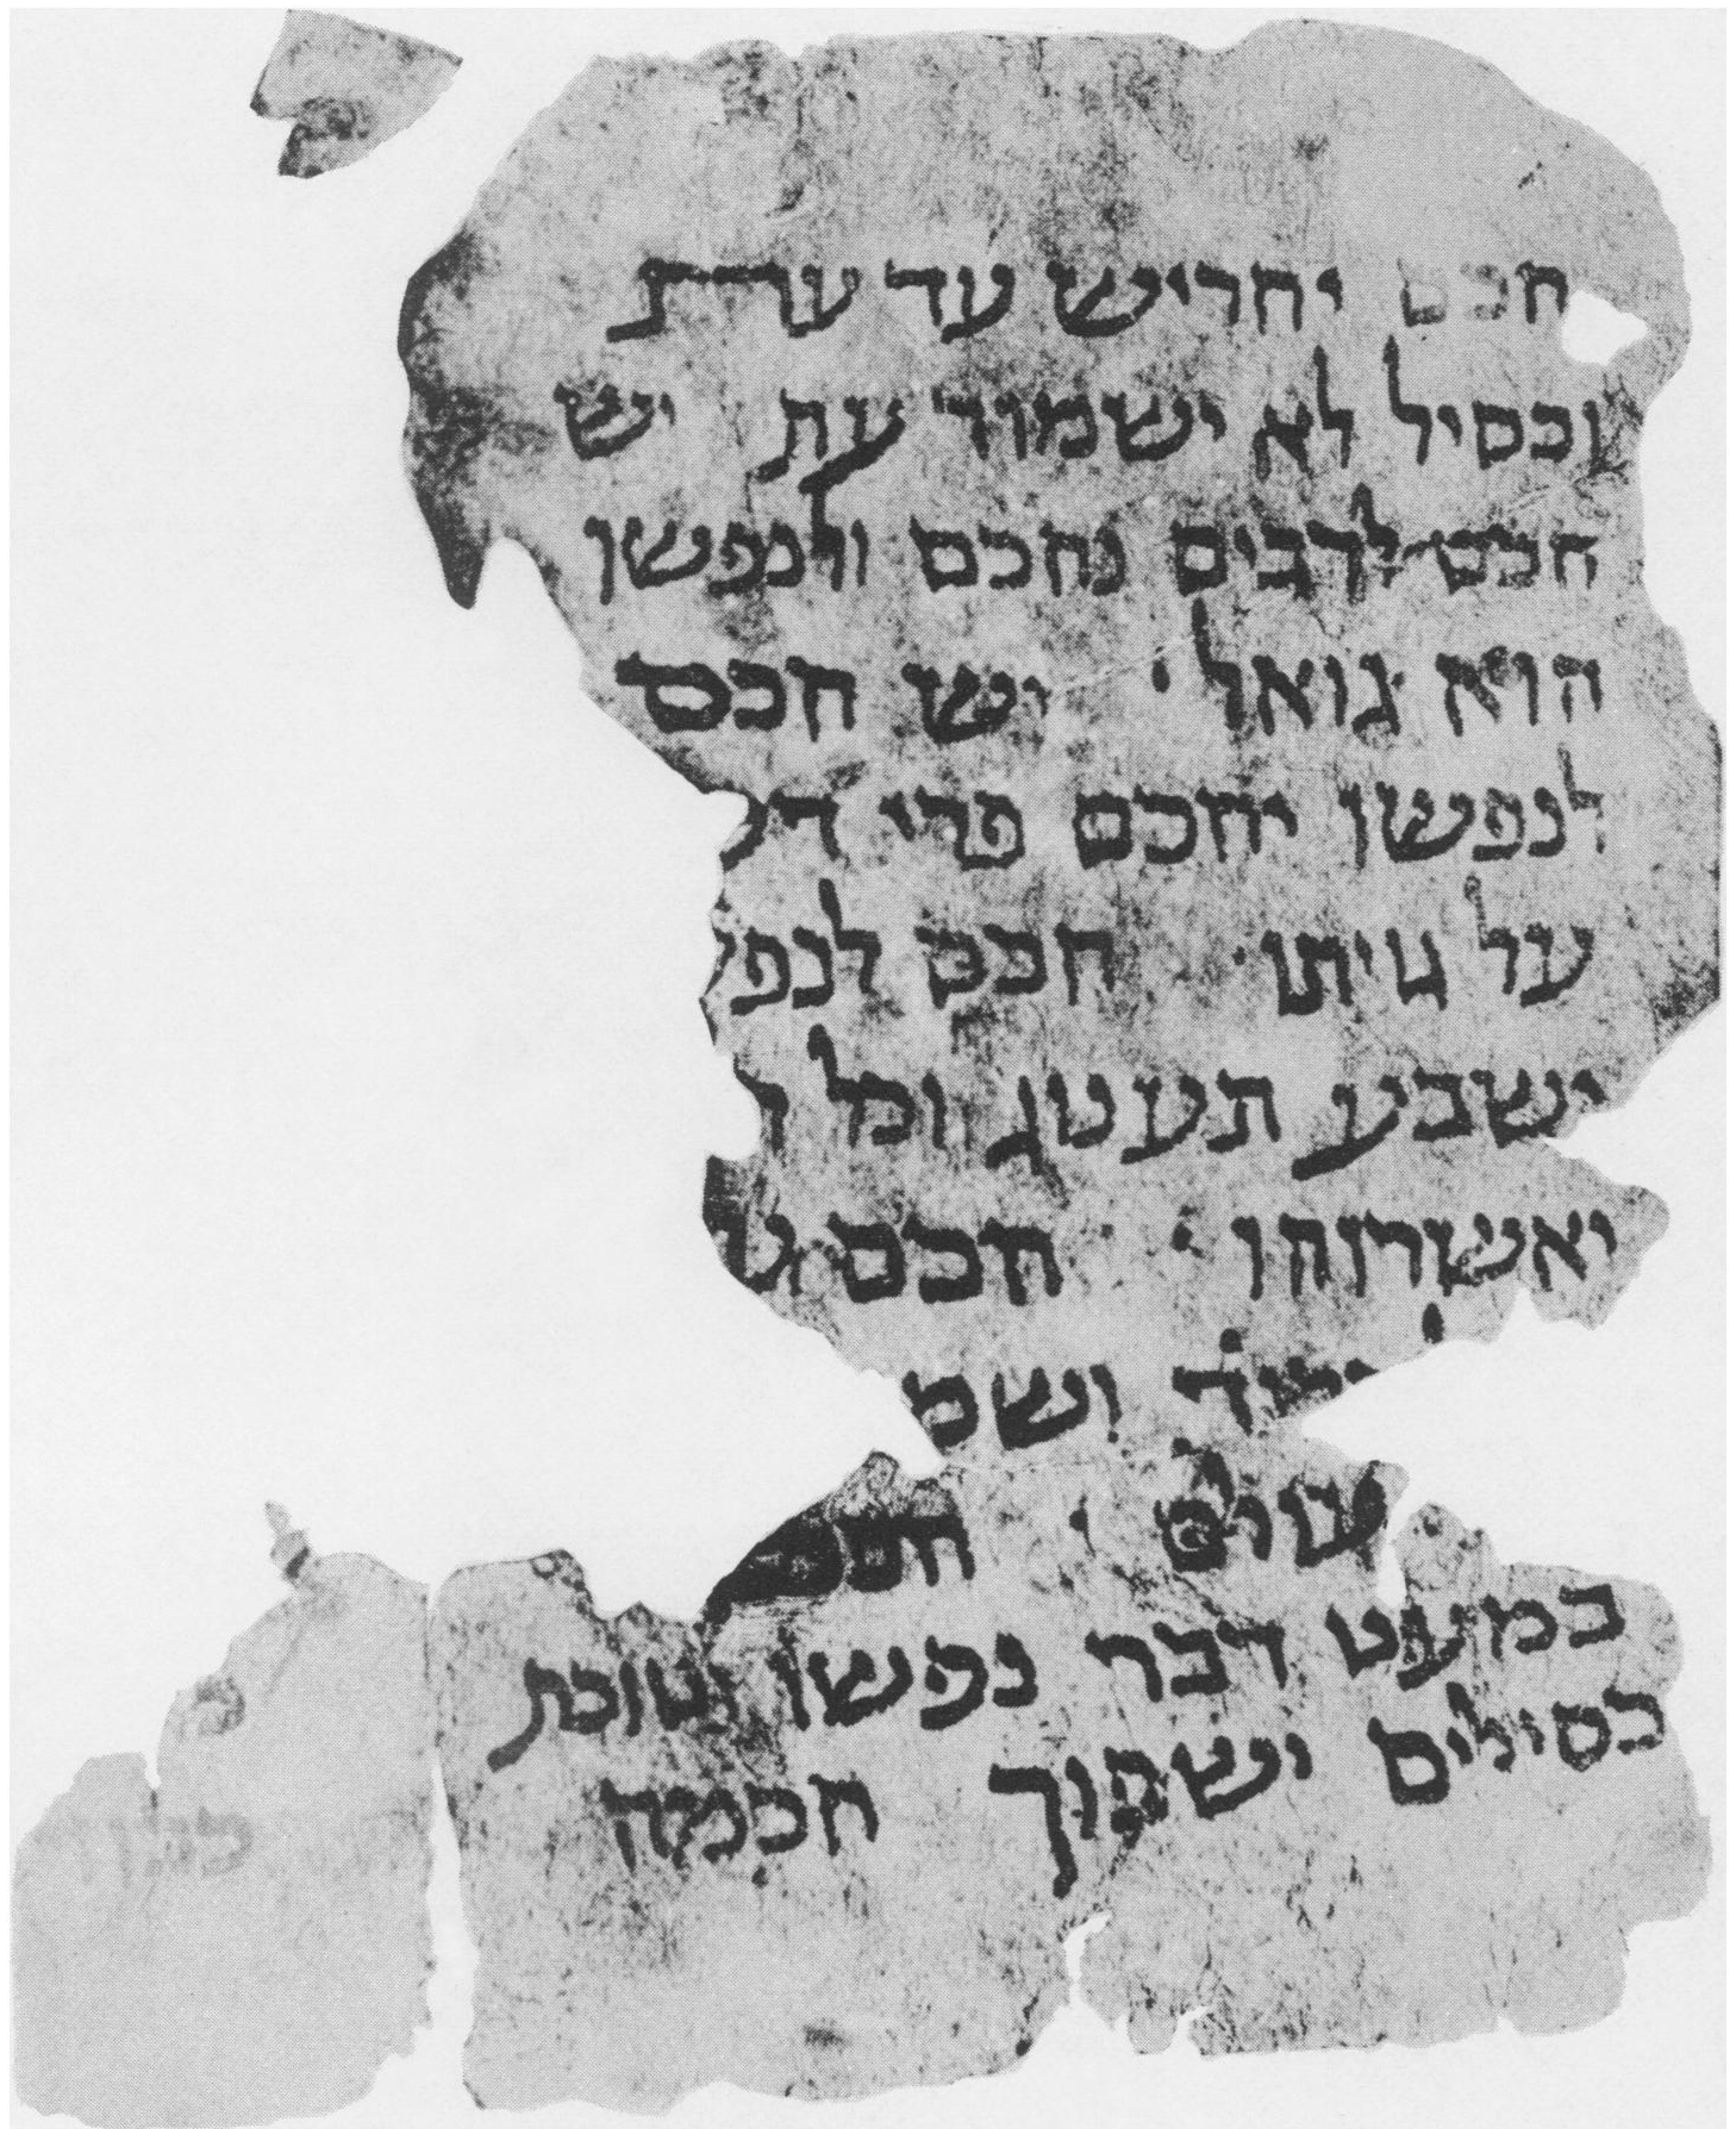 חכם יחריש עד עת
וכסיל לא ישמור עת יש
חכם לרבים נחכם ולנפשו
הוא גואל · יש חכם
לנפשו יחכם פרי
על גויתו · חכם לנפ
ישבע תענוג וכל
יאשרוהו · חכם
ושמ
עולם · חכם
במעט דבר נפשו וטובת
כסילים ישפוך חכמה